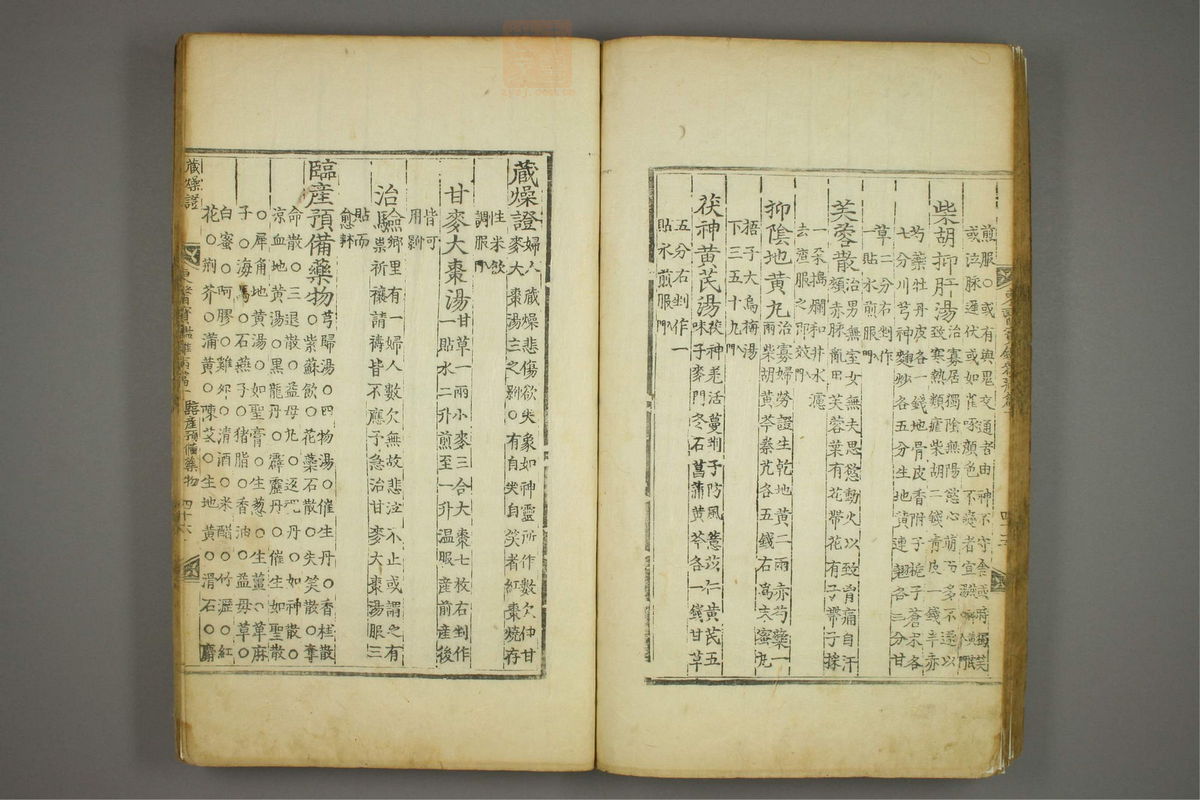 煎服○或有與鬼交通者由神不守舍或時獨笑
或泣脉遲伏或如雀啄顔色不變者宜
柴胡抑肝湯
治寡居獨陰無陽慾心萌而多不遂以
致寒熱類瘧柴胡二錢靑皮一錢半赤
芍藥牡丹皮各一錢地骨皮香附子梔子蒼朮各
七分川芎神麴炒各五分生地黃連翹各三分甘
草二分右剉作
一貼水煎服入門
芙蓉散
治男無室女無夫思慾動火以致胷痛自汗
頰赤脉亂田芙蓉葉有花帶花有子帶子採
一朶搗爛和井水濾
去渣服之卽效入門
抑陰地黃丸
治寡婦勞證生乾地黃二兩赤芍藥一
兩柴胡黃芩秦艽各五錢右爲末蜜丸
梧子大烏梅湯
下三五十丸入門
茯神黃芪湯
茯神羌活蔓荊子防風薏苡仁黃芪五
味子麥門冬石菖蒲黃芩各一錢甘草
五分右剉作一
貼水煎服入門
藏燥證
婦人藏燥悲傷欲哭象如神靈所作數欠伸甘
麥大棗湯主之○有自哭自笑者紅棗燒存
性米飮
調服入門
甘麥大棗湯
甘草一兩小麥三合大棗七枚右剉作
一貼水二升煎至一升温服産前産後
皆可
用
治驗
鄕里有一婦人數欠無故悲泣不止或謂之有
祟祈禳請禱皆不應予急治甘麥大棗湯服三
貼而
愈
臨産預備藥物
芎歸湯○四物湯○催生丹○香桂散
○紫蘇飮○花蘂石散○失笑散○奪
命散○三退散○益母丸○返魂丹○如神散○
涼血地黃湯○黑龍丹○霹靂丹○催生如聖散
○犀角地黃湯○如聖膏○生葱○生薑○萆麻
子○海馬○石燕子○猪脂○香油○益母草○
白蜜○阿膠○雞卵○清酒○米醋○竹瀝○紅
花○荊芥○蒲黃○陳艾○生地黃○滑石○麝
藏燥證
東醫寶鑑雜病篇
臨産預備藥物
四十六